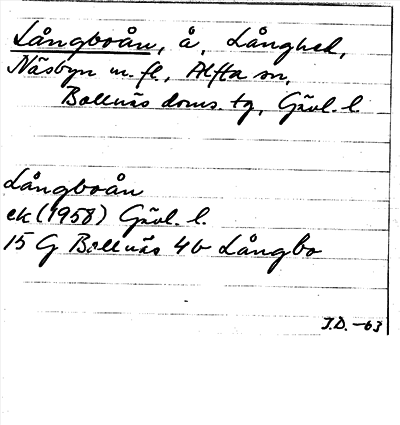 Långboån, å, Långhed,
Näsbyn m. fl., Alfta sn,
Bollnäs doms. tg, Gävl. l.
Långboån
ek (1958) Gävl. l.
15 G Bollnäs 4b Långbo
J.D. -63